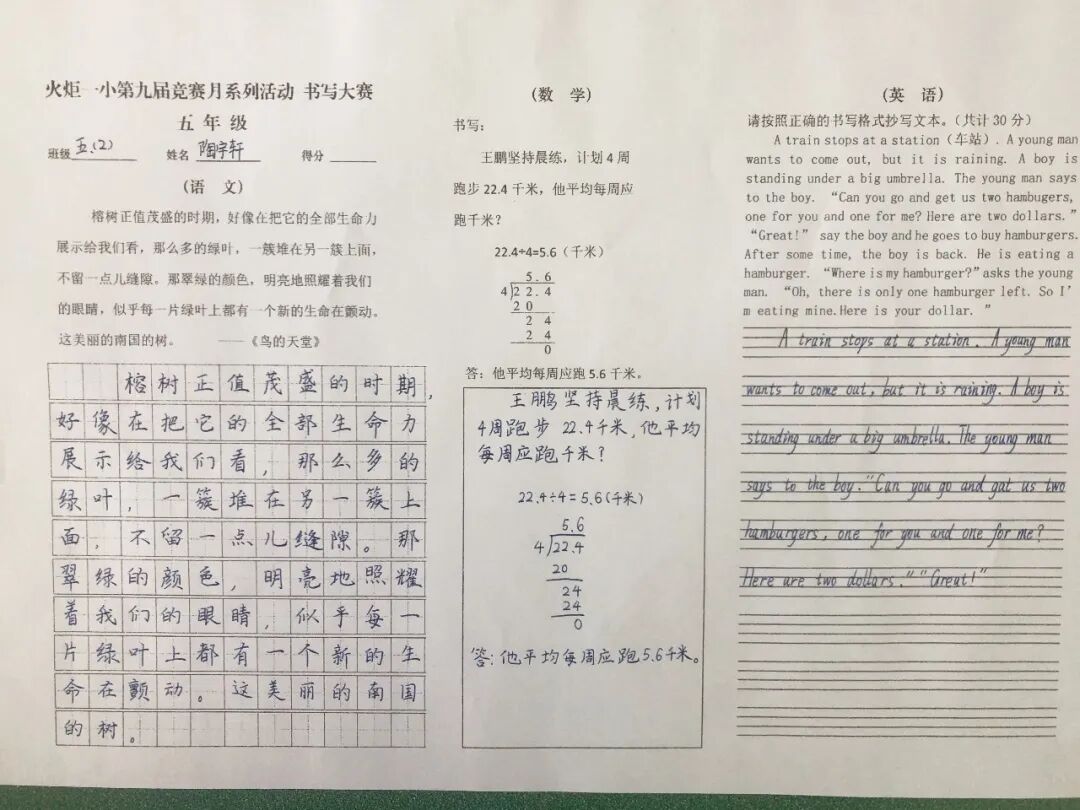 火炬一小第九届竞赛月系列活动 书写大赛
五 年 级
班级 五.(2) 姓名 陶宇轩 得分
（语 文）
榕树正值茂盛的时期，好像在把它的全部生命力
展示给我们看，那么多的绿叶，一簇堆在另一簇上面，
不留一点儿缝隙。那翠绿的颜色，明亮地照耀着我们
的眼睛，似乎每一片绿叶上都有一个新的生命在颤动。
这美丽的南国的树。 ——《鸟的天堂》
榕树正值茂盛的时期，
好像在把它的全部生命力
展示给我们看，那么多的
绿叶，一簇堆在另一簇上
面，不留一点儿缝隙。那
翠绿的颜色，明亮地照耀
着我们的眼睛，似乎每一
片绿叶上都有一个新的生
命在颤动。这美丽的南国
的树。
（数 学）
书写：
王鹏坚持晨练，计划 4 周
跑步 22.4 千米，他平均每周应
跑千米？
22.4÷4=5.6（千米）
5.6
4 22.4
20
2 4
2 4
0
答：他平均每周应跑 5.6 千米。
王鹏坚持晨练，计划
4周跑步 22.4千米，他平均
每周应跑千米？
22.4÷4=5.6(千米)
5.6
4 22.4
20
24
24
0
答：他平均每周应跑5.6千米。
（英 语）
请按照正确的书写格式抄写文本。（共计 30 分）
A train stops at a station（车站）. A young man
wants to come out, but it is raining. A boy is
standing under a big umbrella. The young man says
to the boy. “Can you go and get us two hambugers,
one for you and one for me? Here are two dollars.”
“Great!” say the boy and he goes to buy hamburgers.
After some time, the boy is back. He is eating a
hamburger. “Where is my hamburger?” asks the young
man. “Oh, there is only one hamburger left. So I'
m eating mine. Here is your dollar. ”
A train stops at a station. A young man
wants to come out, but it is raining. A boy is
standing under a big umbrella. The young man
says to the boy. "Can you go and gat us two
hamburgers, one for you and one for me?
Here are two dollars.""Great!"